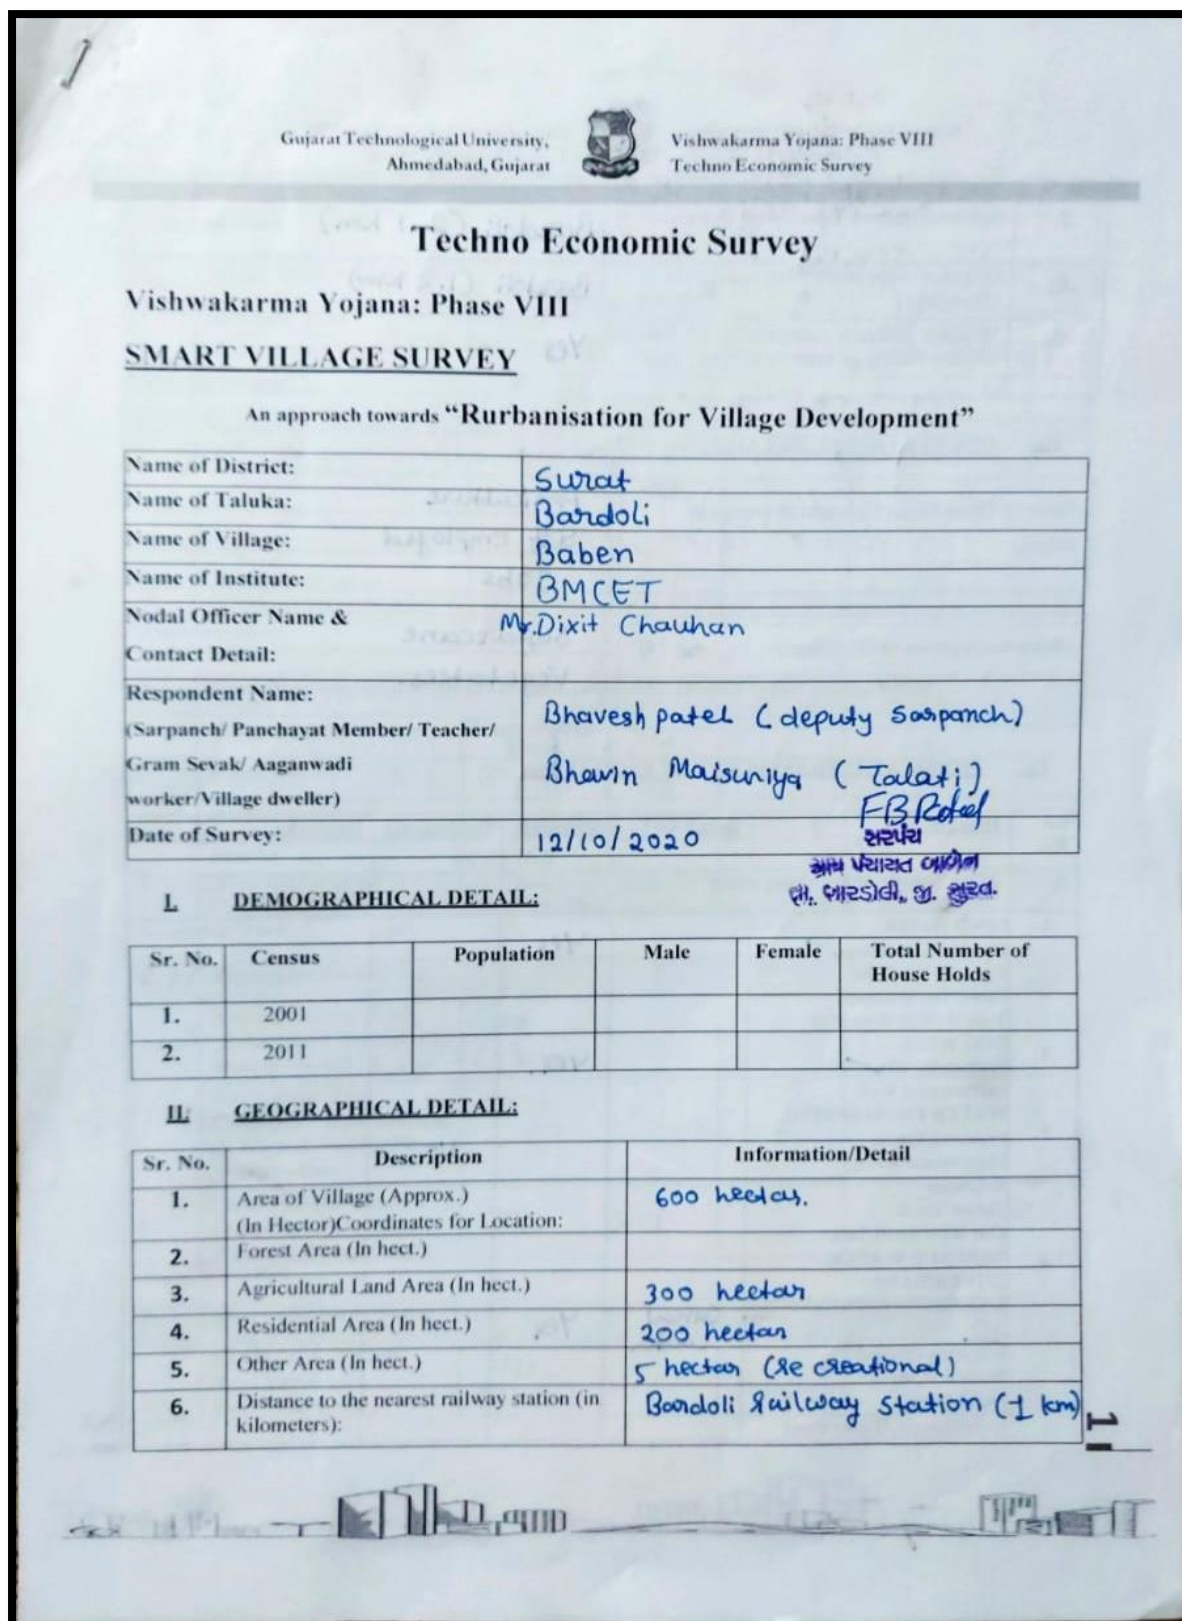 Gujarat Technological University,
Ahmedabad, Gujarat
Vishwakarma Yojana: Phase VIII
Techno Economic Survey
Techno Economic Survey
Vishwakarma Yojana: Phase VIII
SMART VILLAGE SURVEY
An approach towards “Rurbanisation for Village Development”
Name of District: Surat
Name of Taluka: Bardoli
Name of Village: Baben
Name of Institute: BMCET
Nodal Officer Name & Mr.Dixit Chauhan
Contact Detail:
Respondent Name:
(Sarpanch/ Panchayat Member/ Teacher/ Bhavesh patel (deputy Sarpanch)
Gram Sevak/ Aaganwadi Bhavin Maisuriya (Talati)
worker/Village dweller) FB Patel
Date of Survey: 12/10/2020 સરપંચ
ગ્રામ પંચાયત બાબેન
તા. બારડોલી, જી. સુરત.
I. DEMOGRAPHICAL DETAIL:
Sr. No. Census Population Male Female Total Number of
House Holds
1. 2001
2. 2011
II: GEOGRAPHICAL DETAIL:
Sr. No. Description Information/Detail
1. Area of Village (Approx.) 600 hectar.
(In Hector)Coordinates for Location:
2. Forest Area (In hect.)
3. Agricultural Land Area (In hect.) 300 hectar
4. Residential Area (In hect.) 200 hectar
5. Other Area (In hect.) 5 hectar (recreational)
6. Distance to the nearest railway station (in Bardoli railway station (1 km)
kilometers):
1